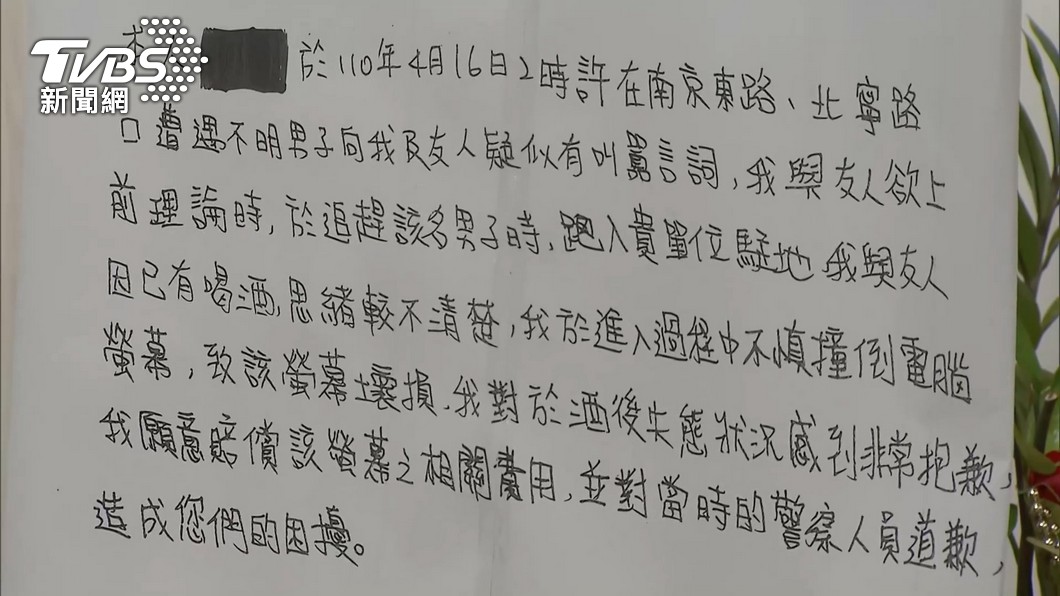 TVBS
新聞網
本人 於110年4月16日2時許在南京東路、北寧路
口遭遇不明男子向我及友人疑似有叫囂言詞,我與友人欲上
前理論時,於追趕該名男子時,跑入貴單位駐地,我與友人
因已有喝酒,思緒較不清楚,我於進入過程中不慎撞倒電腦
螢幕,致該螢幕壞損,我對於酒後失態狀況感到非常抱歉,
我願意賠償該螢幕之相關費用,並對當時的警察人員道歉,
造成您們的困擾。